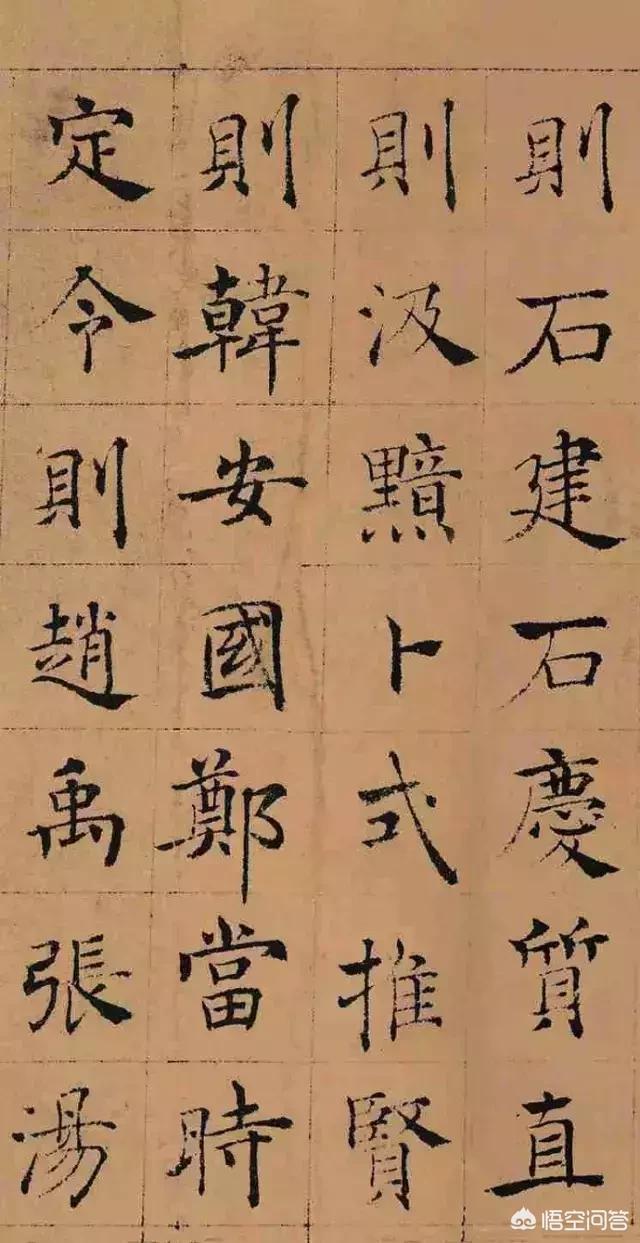 則石建石慶質直
則汲黯卜式推賢
則韓安國鄭當時
定令則趙禹張湯
悟空问答